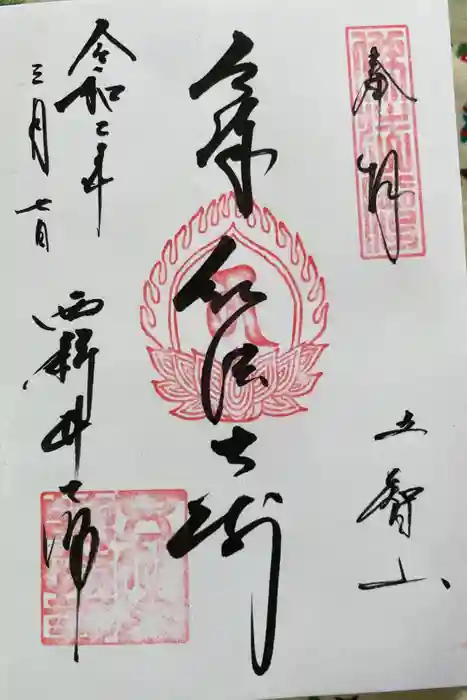 奉拝
五智山
弘法大師
令和二年
三月七日
西新井大師